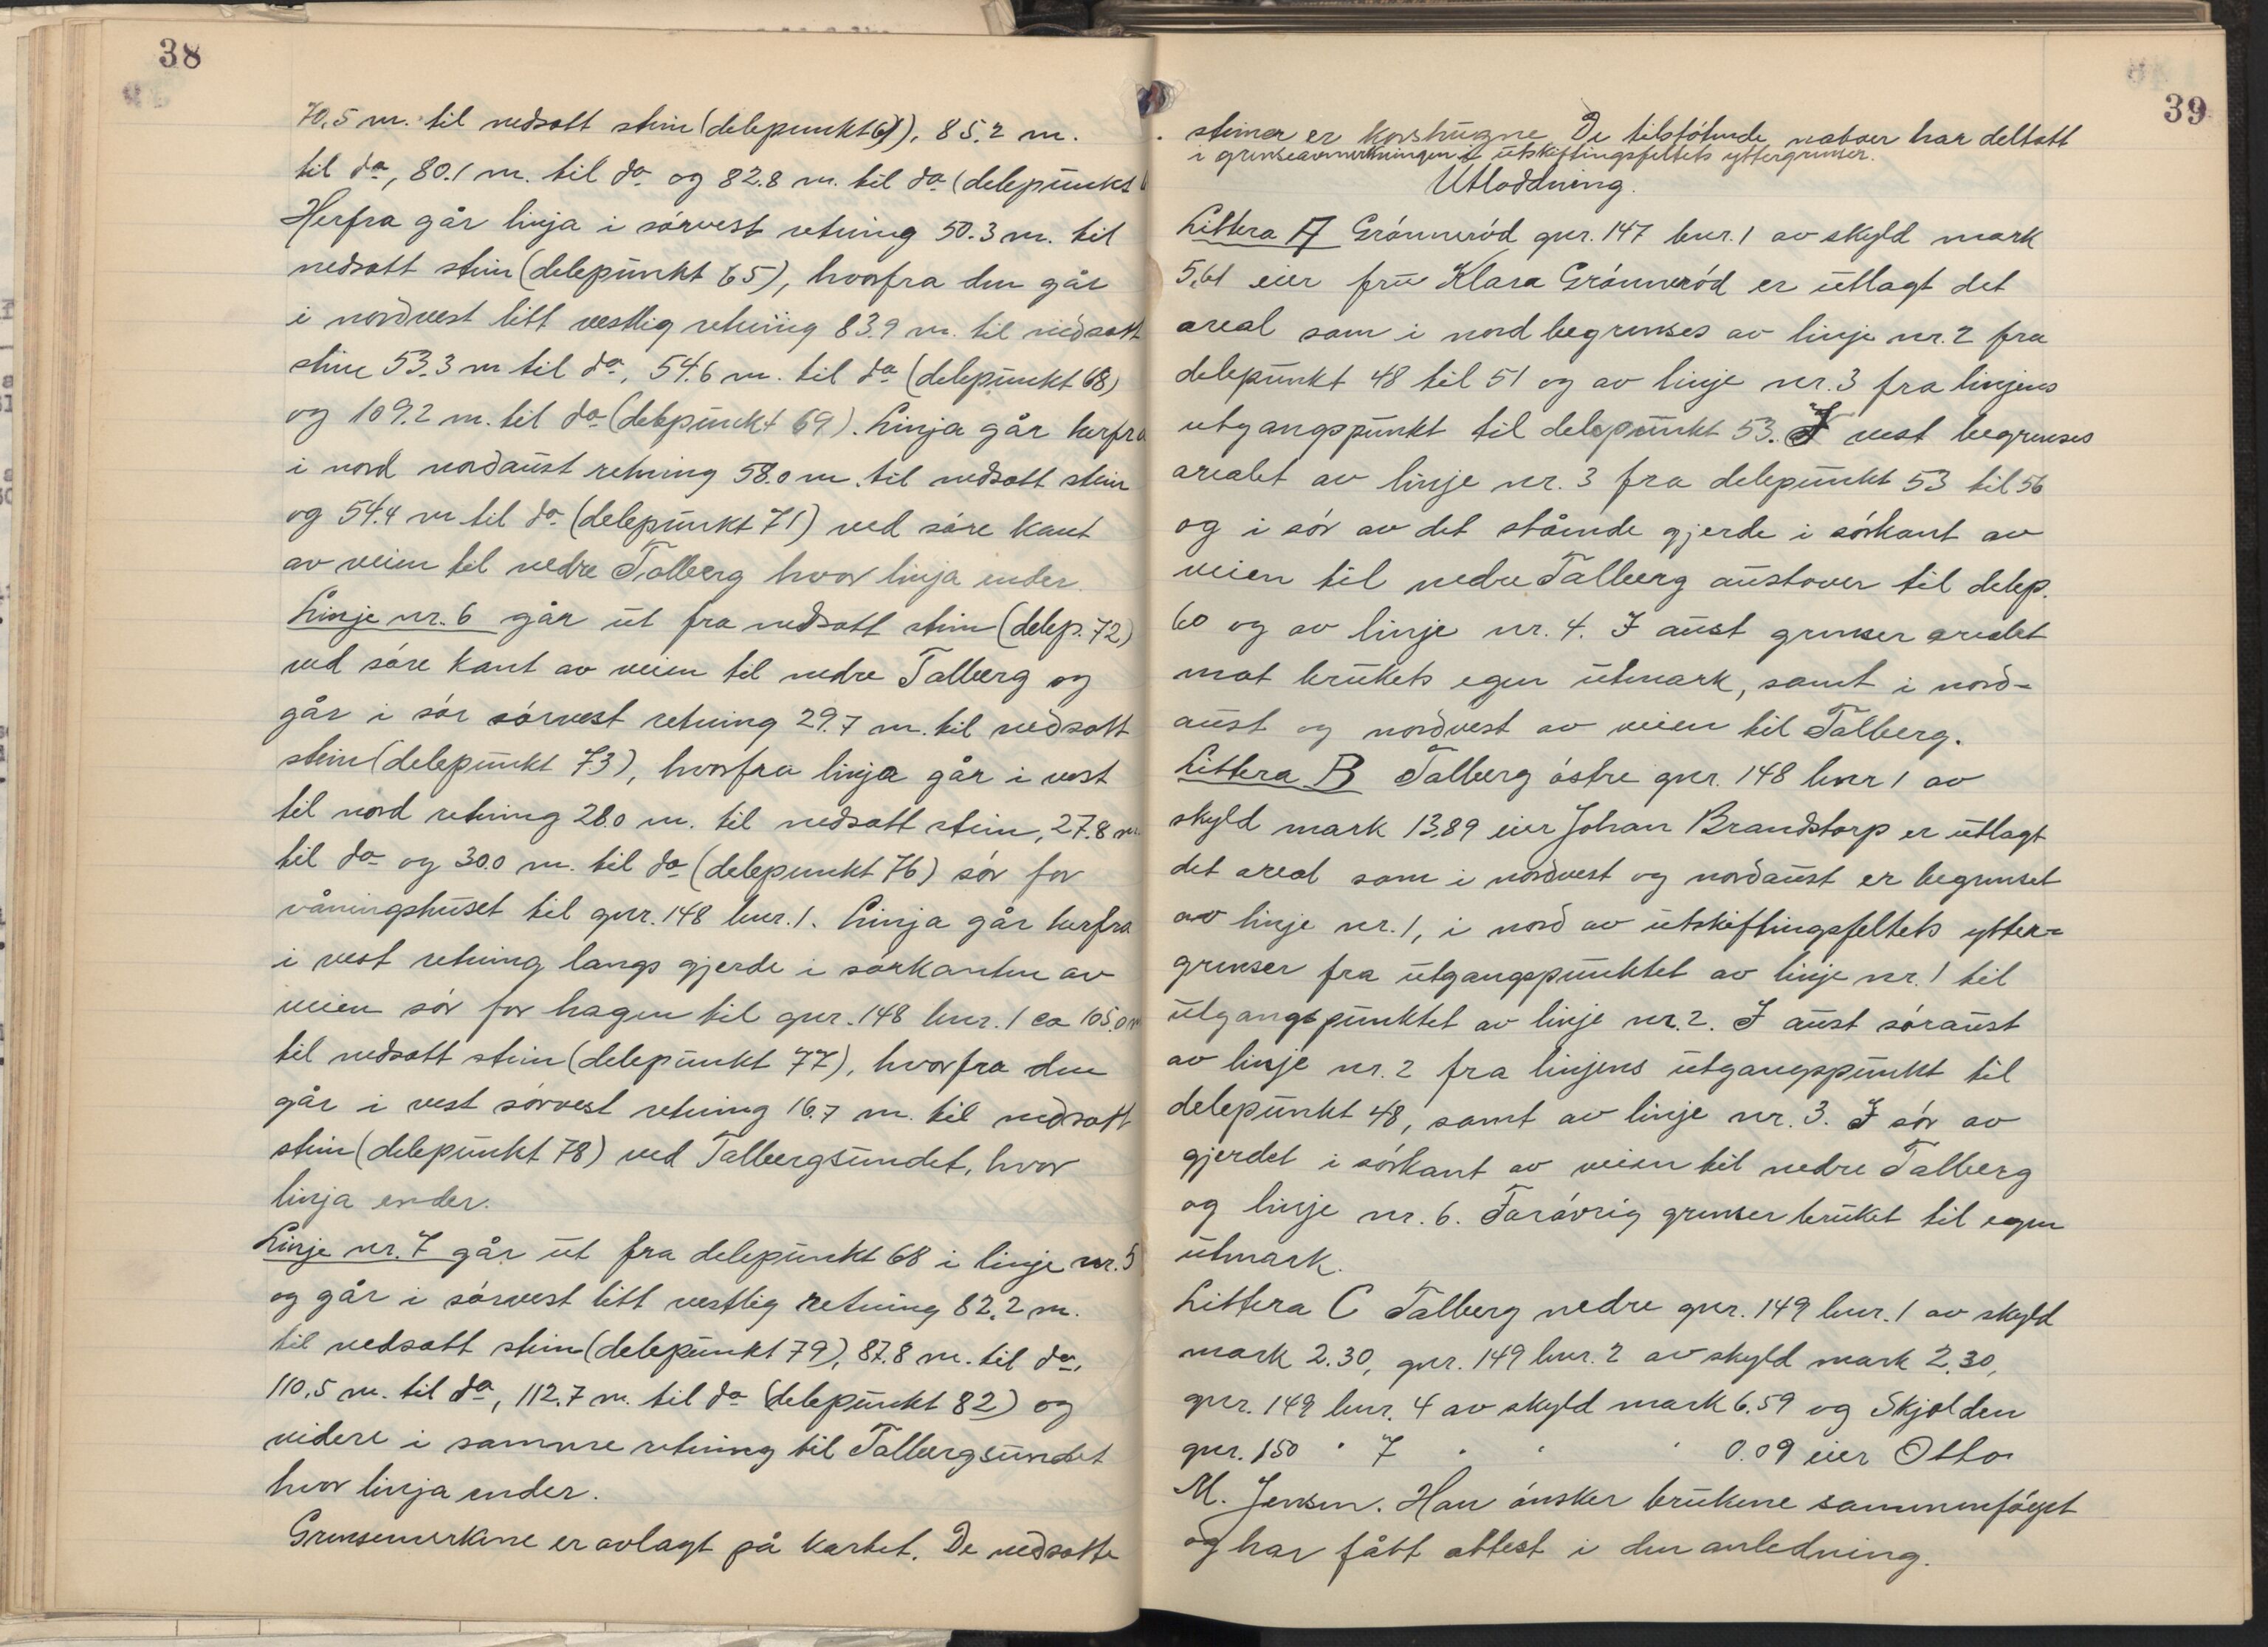 38
70.5 m. til nedsatt stein (delepunkt 61), 85.2 m.
til do, 80.1 m. til do og 82.8 m. til do (delepunkt
Herfra går linja i sørvest retning 50.3 m. til
nedsatt stein (delepunkt 65), hvorfra den går
i nordvest litt vestlig retning 83.9 m. til nedsatt
stein 53.3 m til do, 54.6 m. til do (delepunkt 68)
og 109.2 m. til do (delepunkt 69). Linja går herfra
i nord nordaust retning 58.0 m. til nedsatt stein
og 54.4 m til do (delepunkt 71) ved søre kant
av veien til nedre Talberg hvor linja ender.
Linje nr. 6 går ut fra nedsatt stein (delep. 72)
ved søre kant av veien til nedre Talberg og
går i sør sørvest retning 29.7 m. til nedsatt
stein (delepunkt 73), hvorfra linja går i vest
til nord retning 28.0 m. til nedsatt stein, 27.8 m.
til do og 30.0 m. til do (delepunkt 76) sør for
våningshuset til gnr. 148 bnr. 1. Linja går herfra
i vest retning langs gjerde i sørkanten av
veien sør for hagen til gnr. 148 bnr. 1 ca 105.0 m
til nedsatt stein (delepunkt 77), hvorfra den
går i vest sørvest retning 16.7 m. til nedsatt
stein (delepunkt 78) ved Talbergsundet, hvor
linja ender.
Linje nr. 7 går ut fra delepunkt 68 i linje nr. 5
og går i sørvest litt vestlig retning 82.2 m.
til nedsatt stein (delepunkt 79), 87.8 m. til do,
110.5 m. til do, 112.7 m. til do (delepunkt 82) og
videre i samme retning til Talbergsundet
hvor linja ender.
Grensemerkene er avlagt på kartet. De nedsatte
39
steiner er korshugne. De tilstøtende naboer har deltatt
i grenseavmerkningen i utskiftingsfeltets yttergrenser.
Utloddning.
Littera A Grønnerød gnr. 147 bnr. 1 av skyld mark
5.61 eier fru Klara Grønnerød er utlagt det
areal som i nord begrenses av linje nr. 2 fra
delepunkt 48 til 51 og av linje nr. 3 fra linjens
utgangspunkt til delepunkt 53. I vest begrenses
arealet av linje nr. 3 fra delepunkt 53 til 56
og i sør av det stående gjerde i sørkant av
veien til nedre Talberg austover til delep.
60 og av linje nr. 4. I aust grenser arealet
mot brukets egen utmark, samt i nord-
aust og nordvest av veien til Talberg.
Littera B Talberg østre gnr. 148 bnr 1 av
skyld mark 13.89 eier Johan Brandstorp er utlagt
det areal som i nordvest og nordaust er begrenset
av linje nr. 1, i nord av utskiftingsfeltets ytter-
grenser fra utgangspunktet av linje nr. 1 til
utgangspunktet av linje nr. 2. I aust søraust
av linje nr. 2 fra linjens utgangspunkt til
delepunkt 48, samt av linje nr. 3. I sør av
gjerdet i sørkant av veien til nedre Talberg
og linje nr. 6. Forøvrig grenser bruket til egen
utmark.
Littera C Talberg nedre gnr. 149 bnr. 1 av skyld
mark 2.30, gnr. 149 bnr. 2 av skyld mark 2.30,
gnr. 149 bnr. 4 av skyld mark 6.59 og Skjolden
gnr. 150 " 7 " " " 0.09 eier Otto
M. Jensen. Han ønsker brukene sammenføyet
og har fått attest i den anledning.